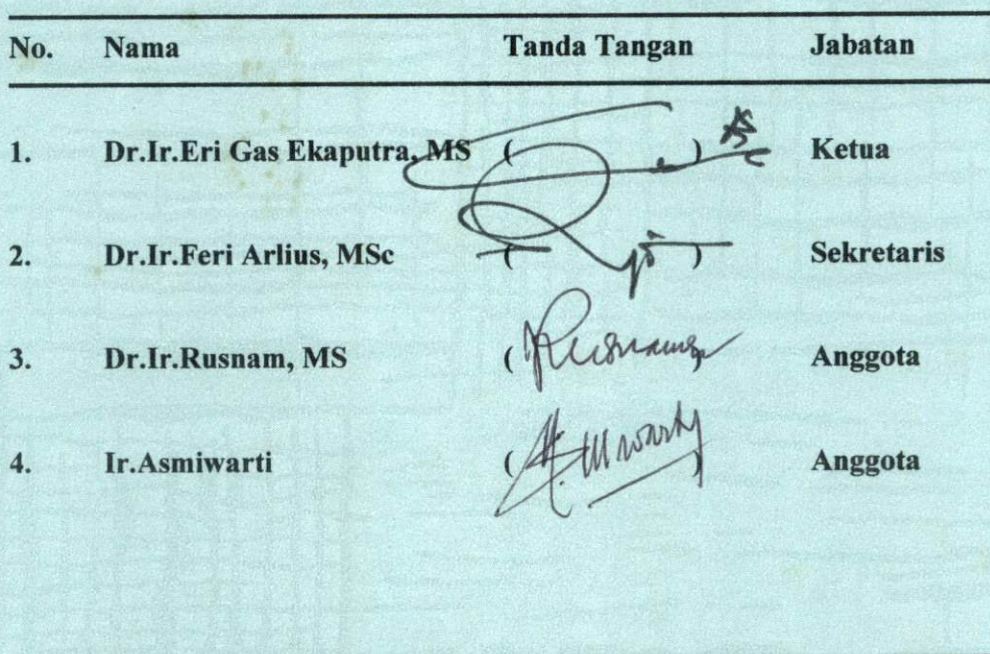 No. Nama Tanda Tangan Jabatan
1. Dr.Ir.Eri Gas Ekaputra, MS ( ) Ketua
2. Dr.Ir.Feri Arlius, MSc ( ) Sekretaris
3. Dr.Ir.Rusnam, MS ( ) Anggota
4. Ir.Asmiwarti ( ) Anggota